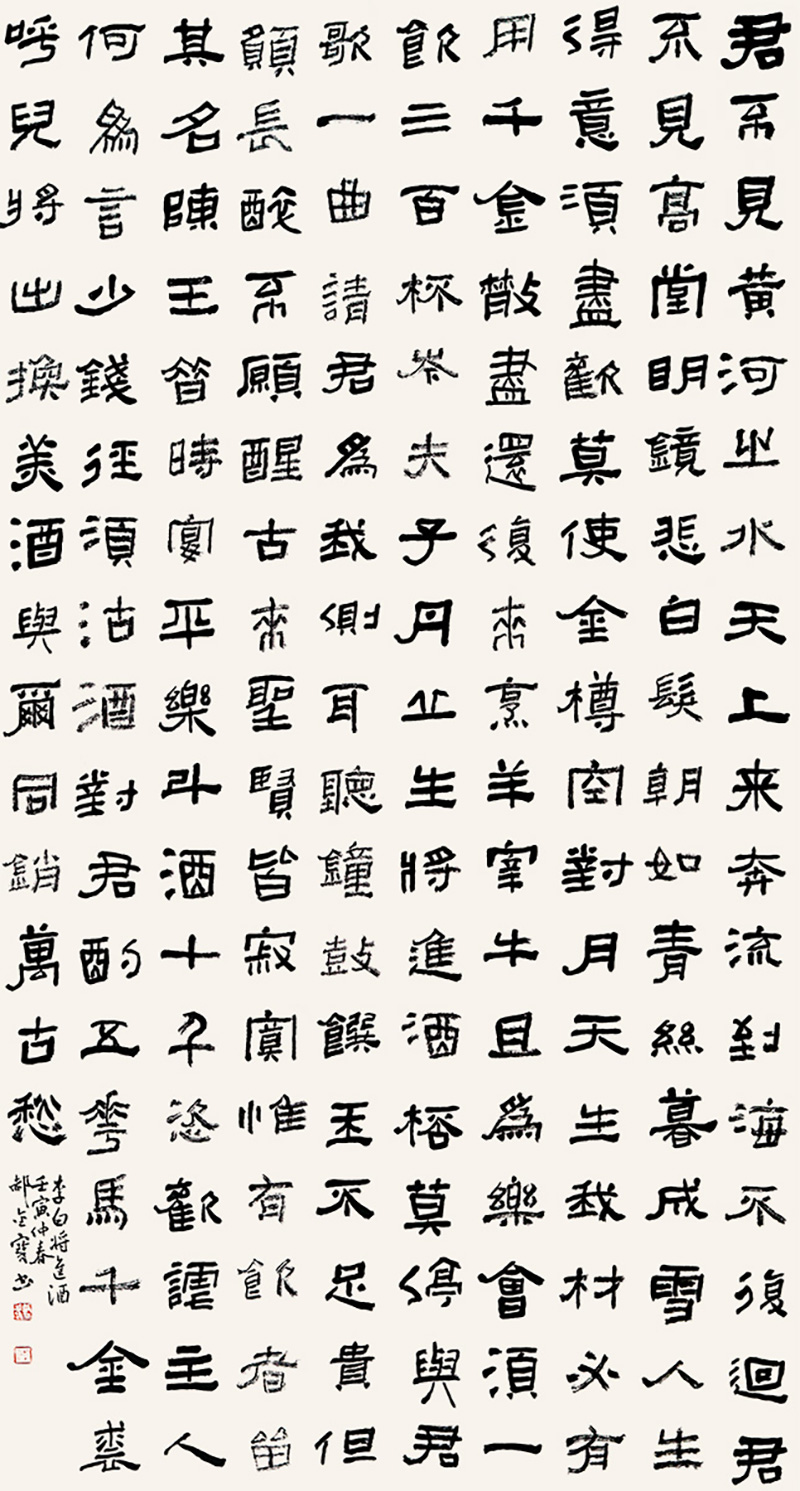 君不見黃河之水天上来奔流到海不復迴君
不見高堂明鏡悲白髮朝如青絲暮成雪人生
得意須盡歡莫使金樽空對月天生我材必有
用千金散盡還復來烹羊宰牛且為樂會須一
飲三百杯岑夫子丹丘生將進酒桮莫停與君
歌一曲請君為我側耳聽鐘鼓饌玉不足貴但
願長醉不願醒古來聖賢皆寂寞惟有飲者留
其名陳王昔時宴平樂斗酒十千恣歡謔主人
何為言少錢徑須沽酒對君酌五花馬千金裘
呼兒將出換美酒與爾同銷萬古愁
李白将進酒
壬寅仲春
寶书